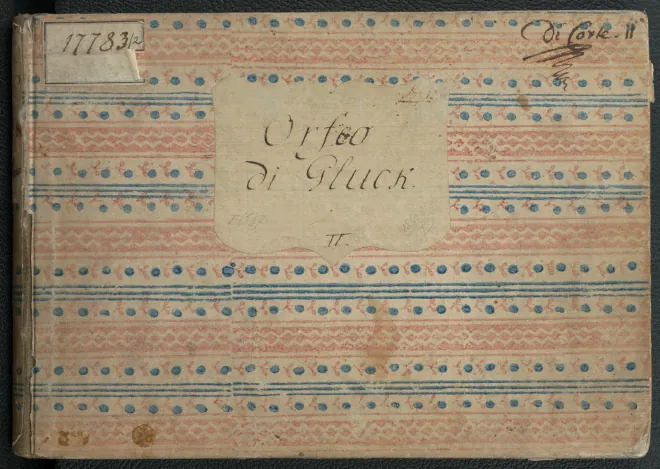 17783/2
Di Corte. II
Orfeo
di Gluck.
II.